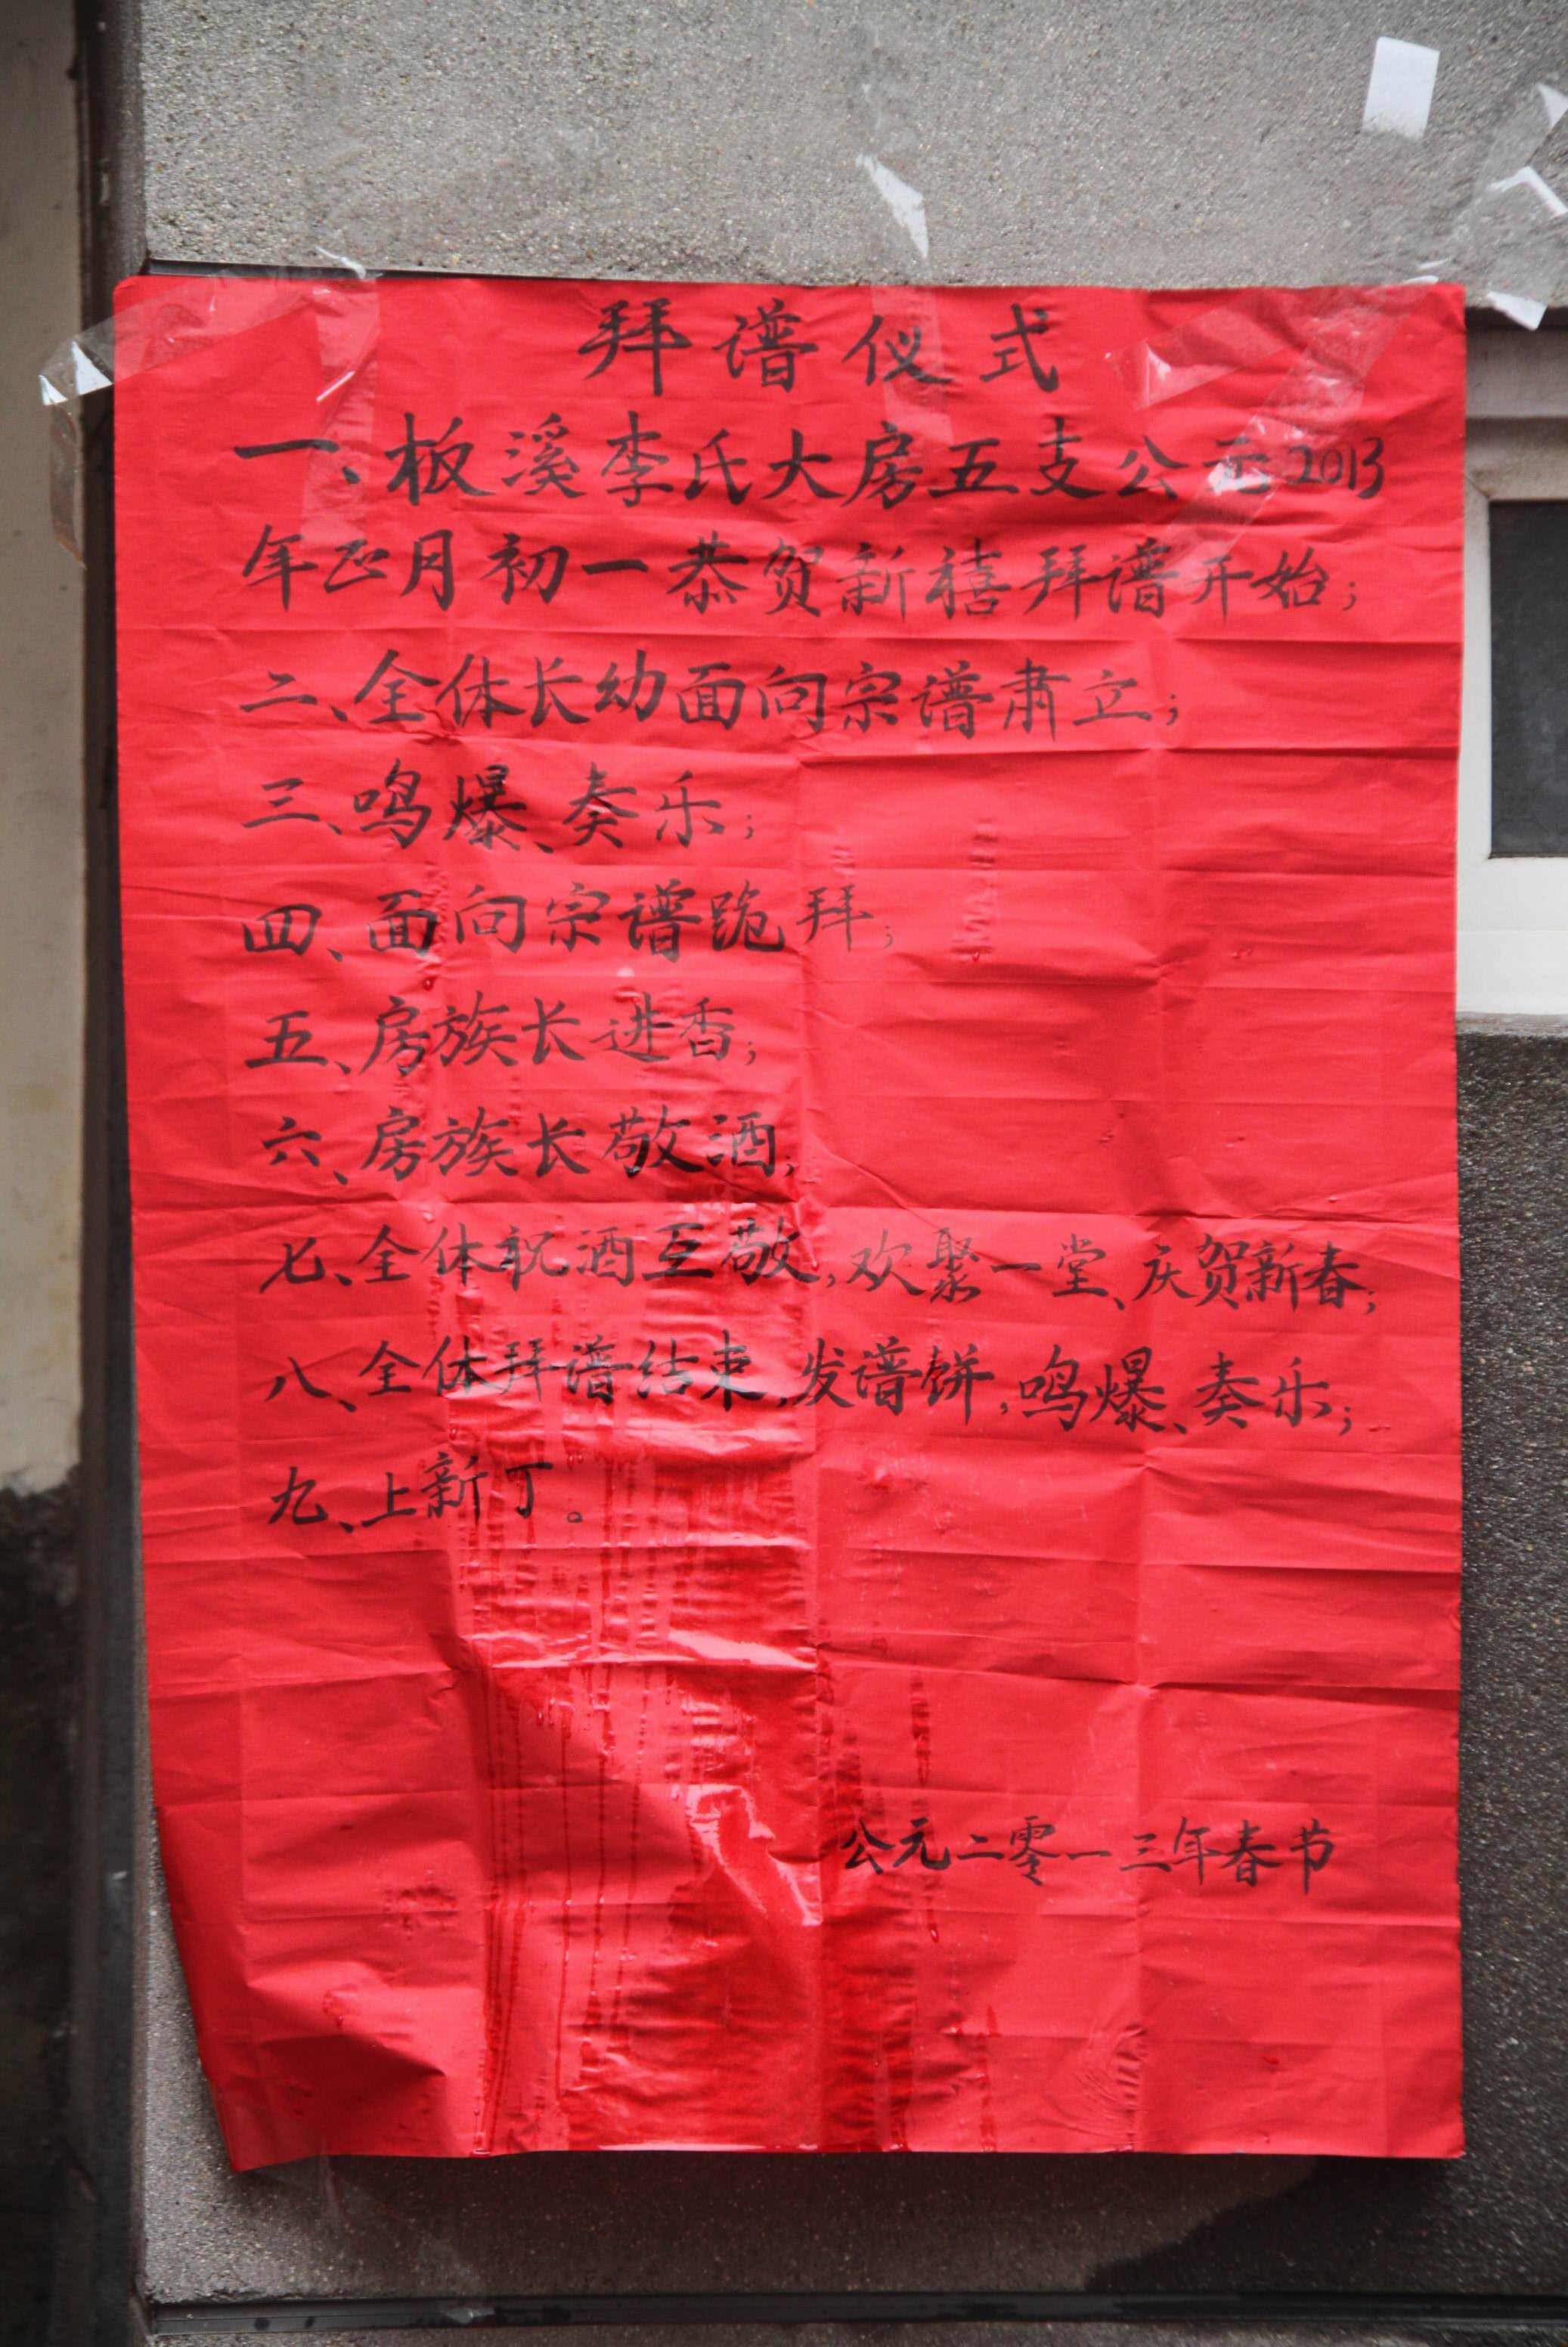 拜谱仪式
一、板溪李氏大房五支公元2013
年正月初一恭贺新禧拜谱开始；
二、全体长幼面向宗谱肃立；
三、鸣爆、奏乐；
四、面向宗谱跪拜；
五、房族长进香；
六、房族长敬酒；
七、全体祝酒互敬，欢聚一堂、庆贺新春；
八、全体拜谱结束，发谱饼，鸣爆、奏乐；
九、上新丁。
公元二零一三年春节